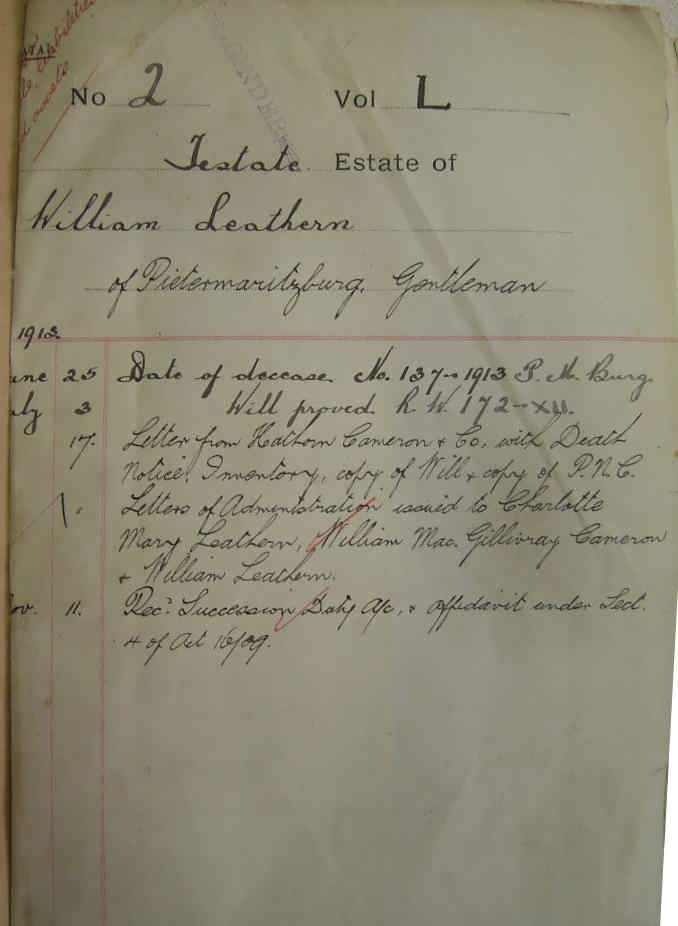 No 2 Vol L
Testate Estate of
William Leathern
of Pietermaritzburg. Gentleman
1913.
25 Date of decease. No. 137-1913 P. M. Burg.
3 Will proved. R. W. 172-XII.
17. Letter from Hathorn Cameron & Co. with Death
Notice, Inventory, copy of Will & copy of P.N.C.
Letters of Administration issued to Charlotte
Mary Leathern, William Mac. Gillivray Cameron
& William Leathern.
11. Recd. Succession Duty A/c, & affidavit under Sect.
4 of Act 16/09.